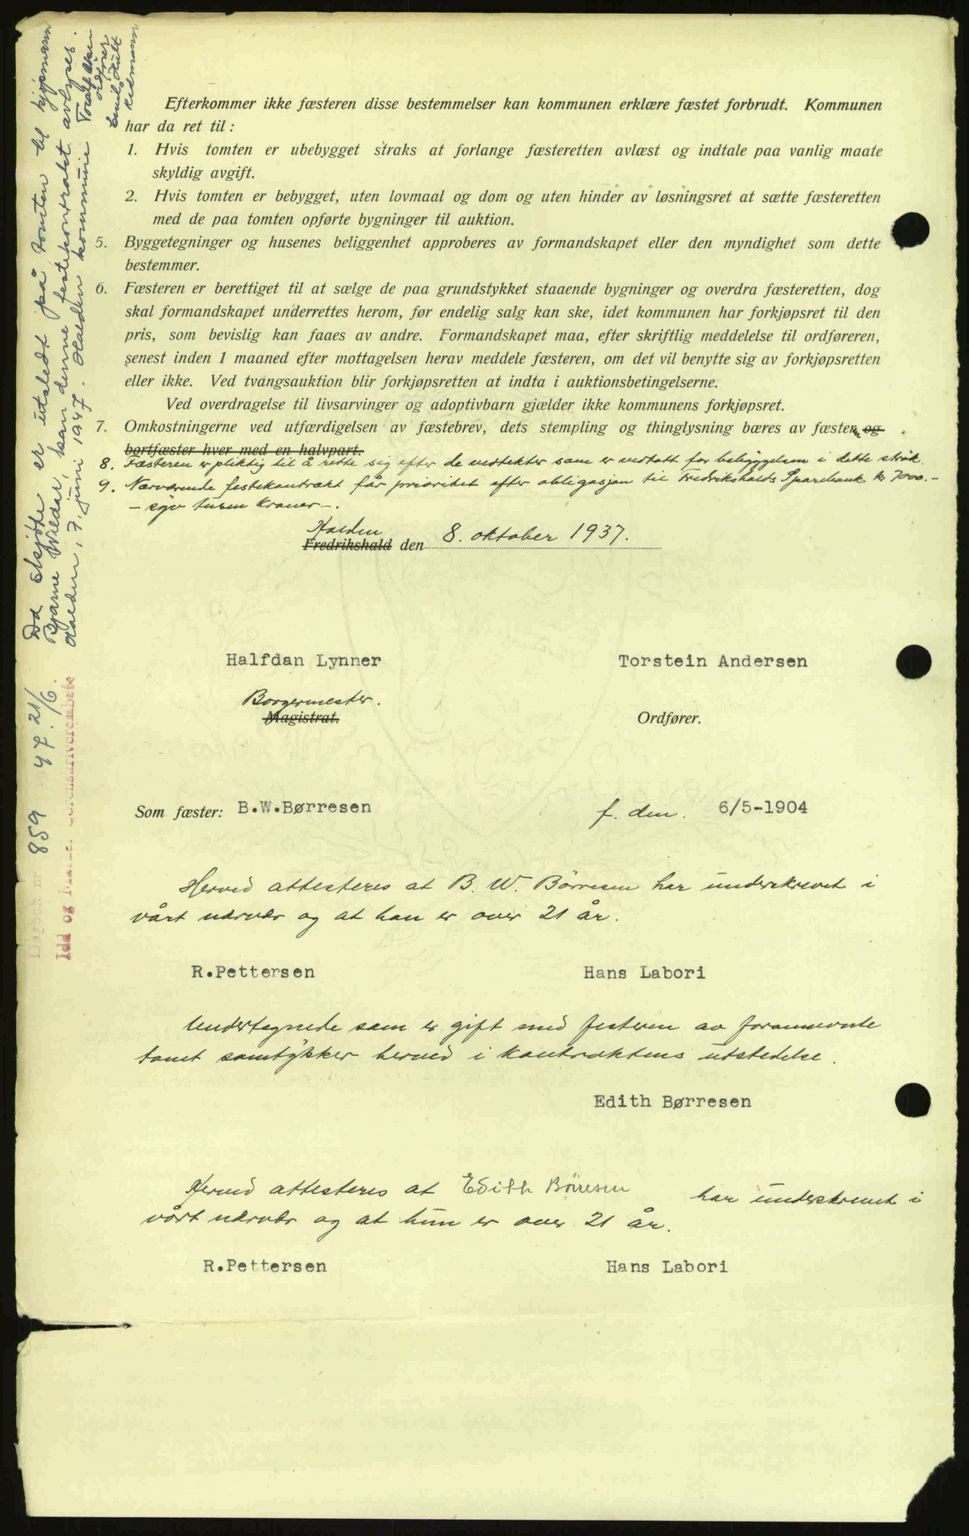 Efterkommer ikke fæsteren disse bestemmelser kan kommunen erklære fæstet forbrudt. Kommunen
har da ret til :
1. Hvis tomten er ubebygget straks at forlange fæsteretten avlæst og indtale paa vanlig maate
skyldig avgift.
2. Hvis tomten er bebygget, uten lovmaal og dom og uten hinder av løsningsret at sætte fæsteretten
med de paa tomten opførte bygninger til auktion.
5. Byggetegninger og husenes beliggenhet approberes av formandskapet eller den myndighet som dette
bestemmer.
6. Fæsteren er berettiget til at sælge de paa grundstykket staaende bygninger og overdra fæsteretten, dog
skal formandskapet underrettes herom, før endelig salg kan ske, idet kommunen har forkjøpsret til den
pris, som bevislig kan faaes av andre. Formandskapet maa, efter skriftlig meddelelse til ordføreren,
senest inden 1 maaned efter mottagelsen herav meddele fæsteren, om det vil benytte sig av forkjøpsretten
eller ikke. Ved tvangsauktion blir forkjøpsretten at indta i auktionsbetingelserne.
Ved overdragelse til livsarvinger og adoptivbarn gjælder ikke kommunens forkjøpsret.
7. Omkostningerne ved utfærdigelsen av fæstebrev, dets stempling og thinglysning bæres av fæsteren og
bortfæster hver med en halvpart.
8. Fæsteren er pliktig til å rette sig efter de vedtekter som er vedtatt for bebyggelsen i dette strøk.
9. Nærværende festekontrakt får prioritet efter obligasjon til Fredrikshalds Sparebank kr 7000.-
- syv tusen kroner -.
Halden
Fredrikshald den 8. oktober 1937.
Halfdan Lynner Torstein Andersen
Borgermester.
Magistrat. Ordfører.
Som fæster: B.W.Børresen f. den. 6/5-1904
Herved attesteres at B. W. Børresen har underskrevet i
vårt nærvær og at han er over 21 år.
R.Pettersen Hans Labori
Undertegnede som er gift med festeren av forannevnte
tomt samtykker herved i kontraktens utstedelse.
Edith Børresen
Herved attesteres at Edith Børresen har underskrevet i
vårt nærvær og at hun er over 21 år.
R.Pettersen Hans Labori
Da skjøte er utstedt på tomten til kjøpmann
Bjarne Wildar, kan denne festekontrakt avlyses.
Halden, 7. juni 1947. Halden kommune
ordfører
Emil Hult
Dagbok nr. 859 47 21/6.
Idd og